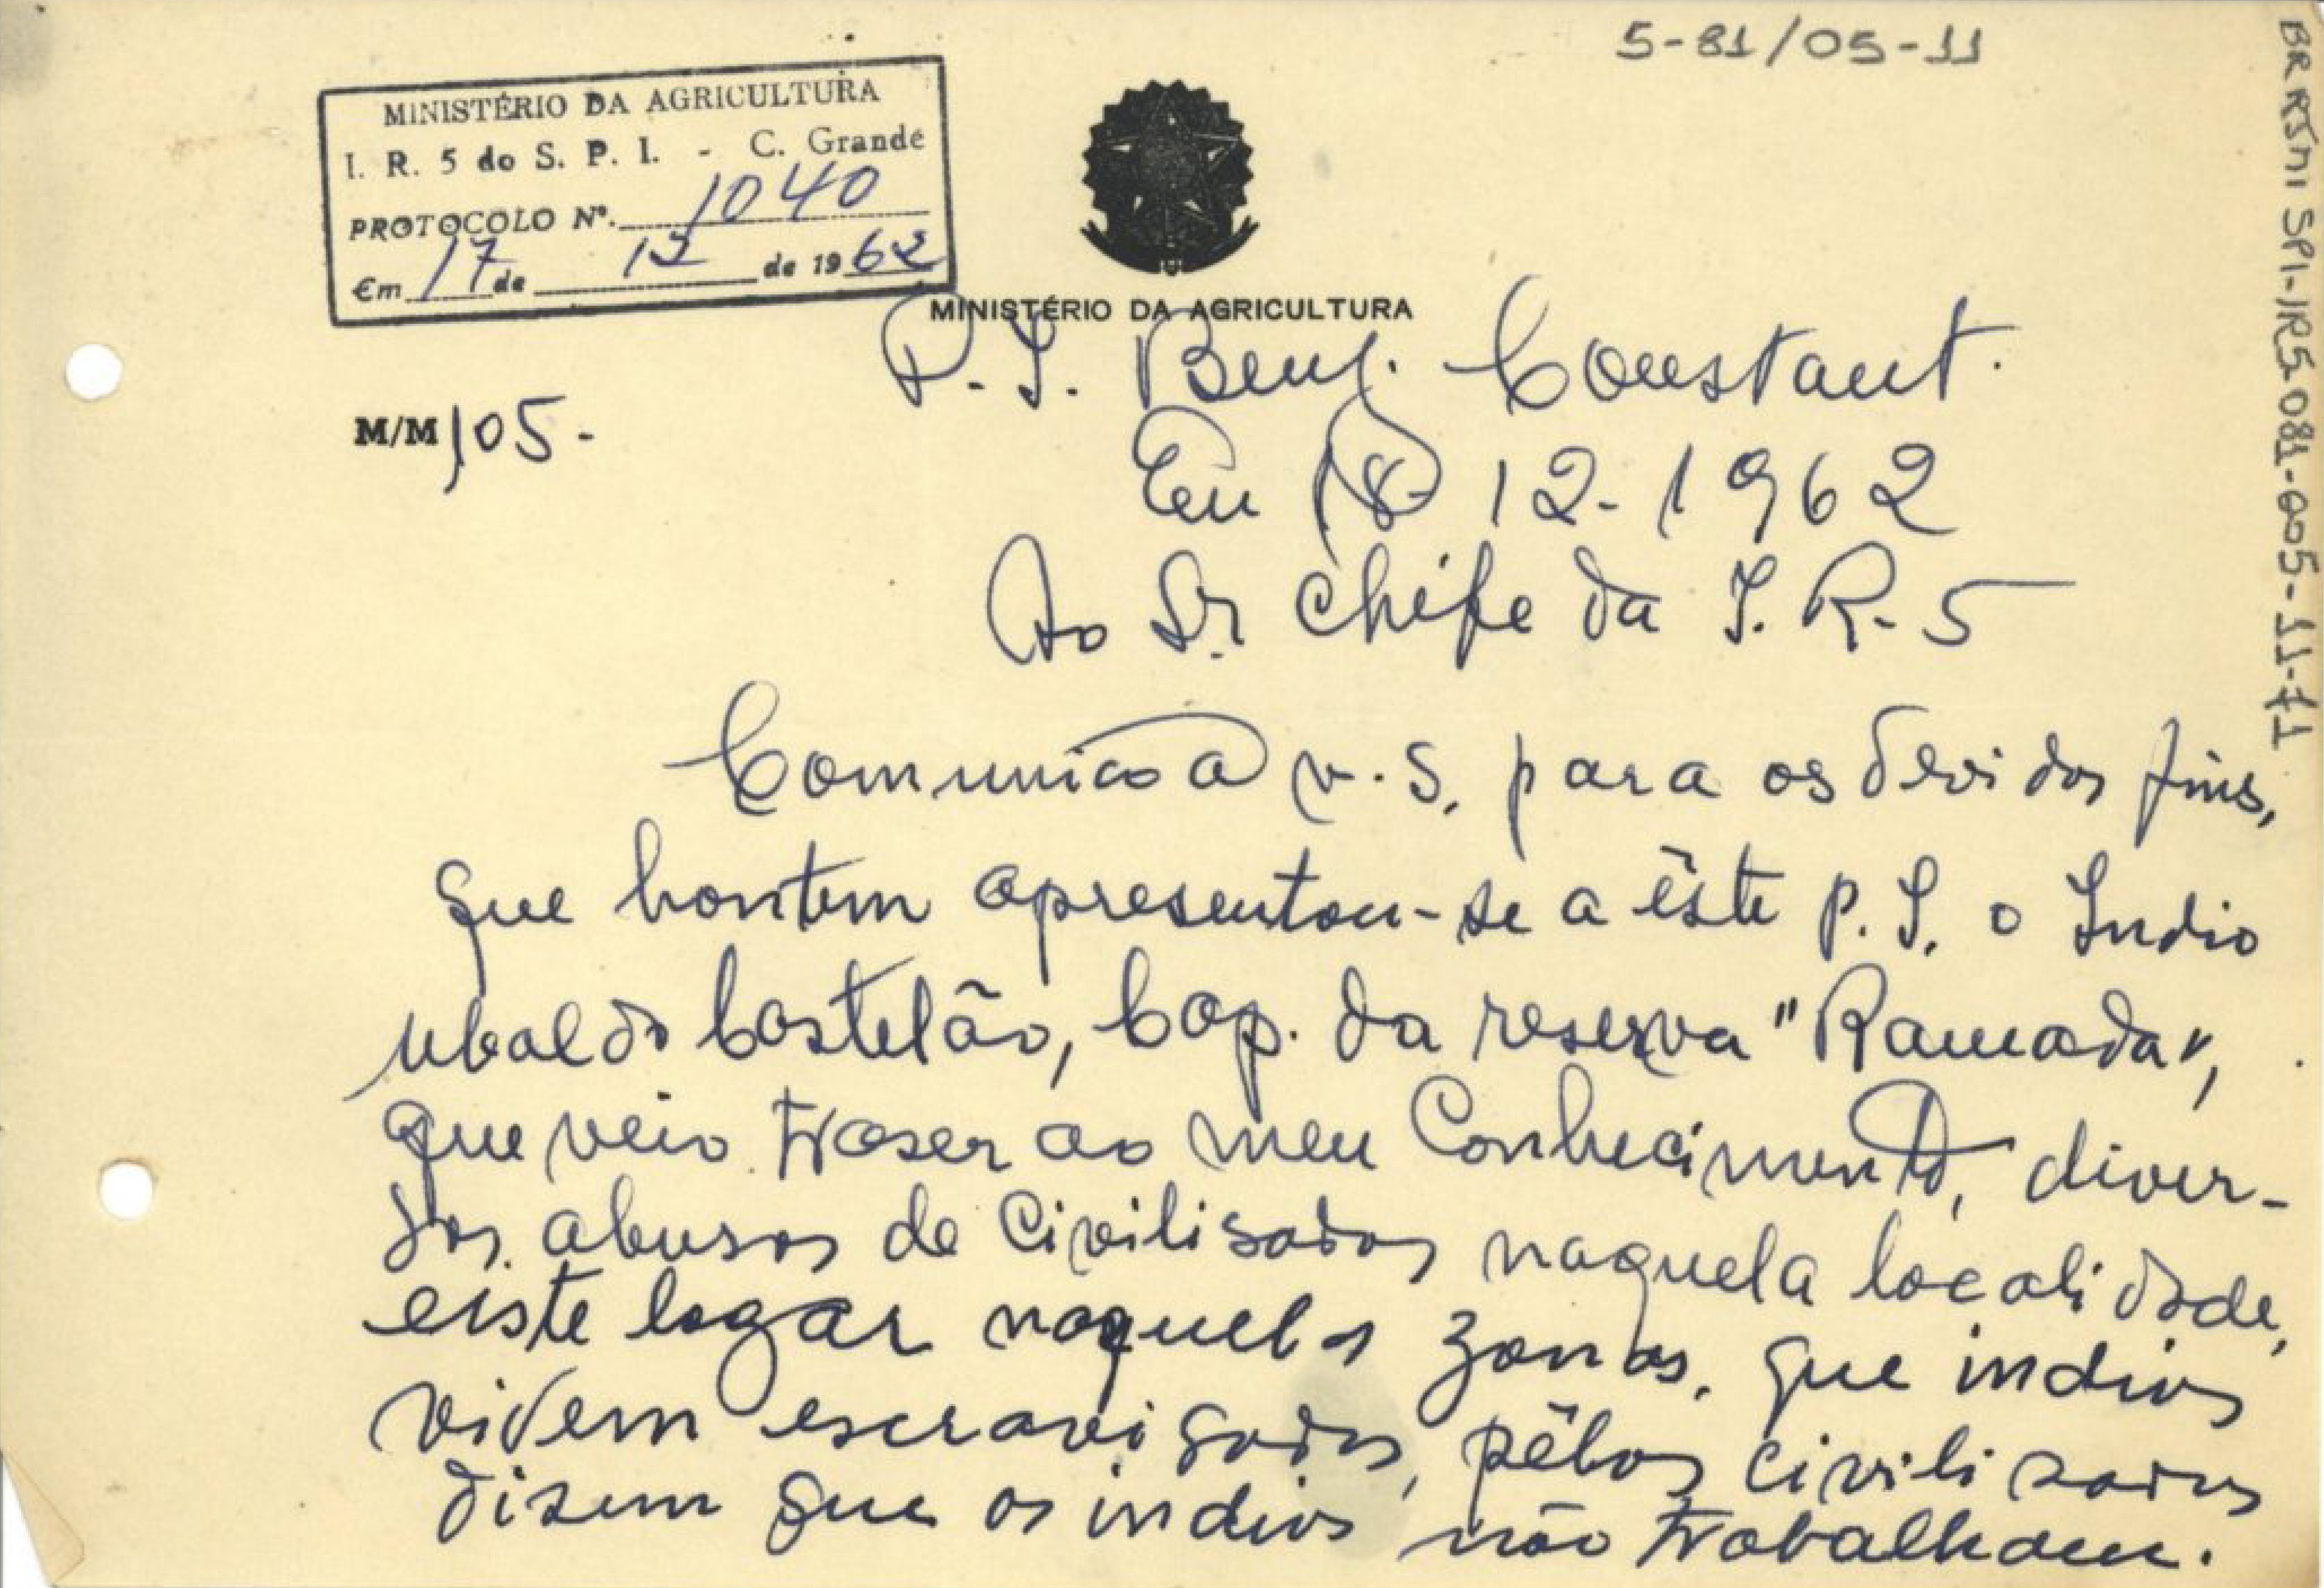 5-81/05-11
BR RJMI SPI-IR5-081-005-11-f1
MINISTÉRIO DA AGRICULTURA
I. R. 5 do S. P. I. - C. Grande
PROTOCOLO Nº. 1040
Em 17 de 12 de 1962
MINISTÉRIO DA AGRICULTURA
P. I. Benj. Constant.
M/M/105-
Em 12-1962
Ao Sr. Chefe da I. R-5
Comunico a v. S. para os devidos fins,
que hontem apresentou-se a êste P. I. o Indio
Ubaldo Castelão, Cap. da reserva "Ramada",
que veio traser ao meu Conhecimento, diver-
sos abusos de Civilisados naquela localidade,
eiste logar naquelas zonas, que indios
vivem escravisados, pêlos civilisados
disem que os indios não trabalham.